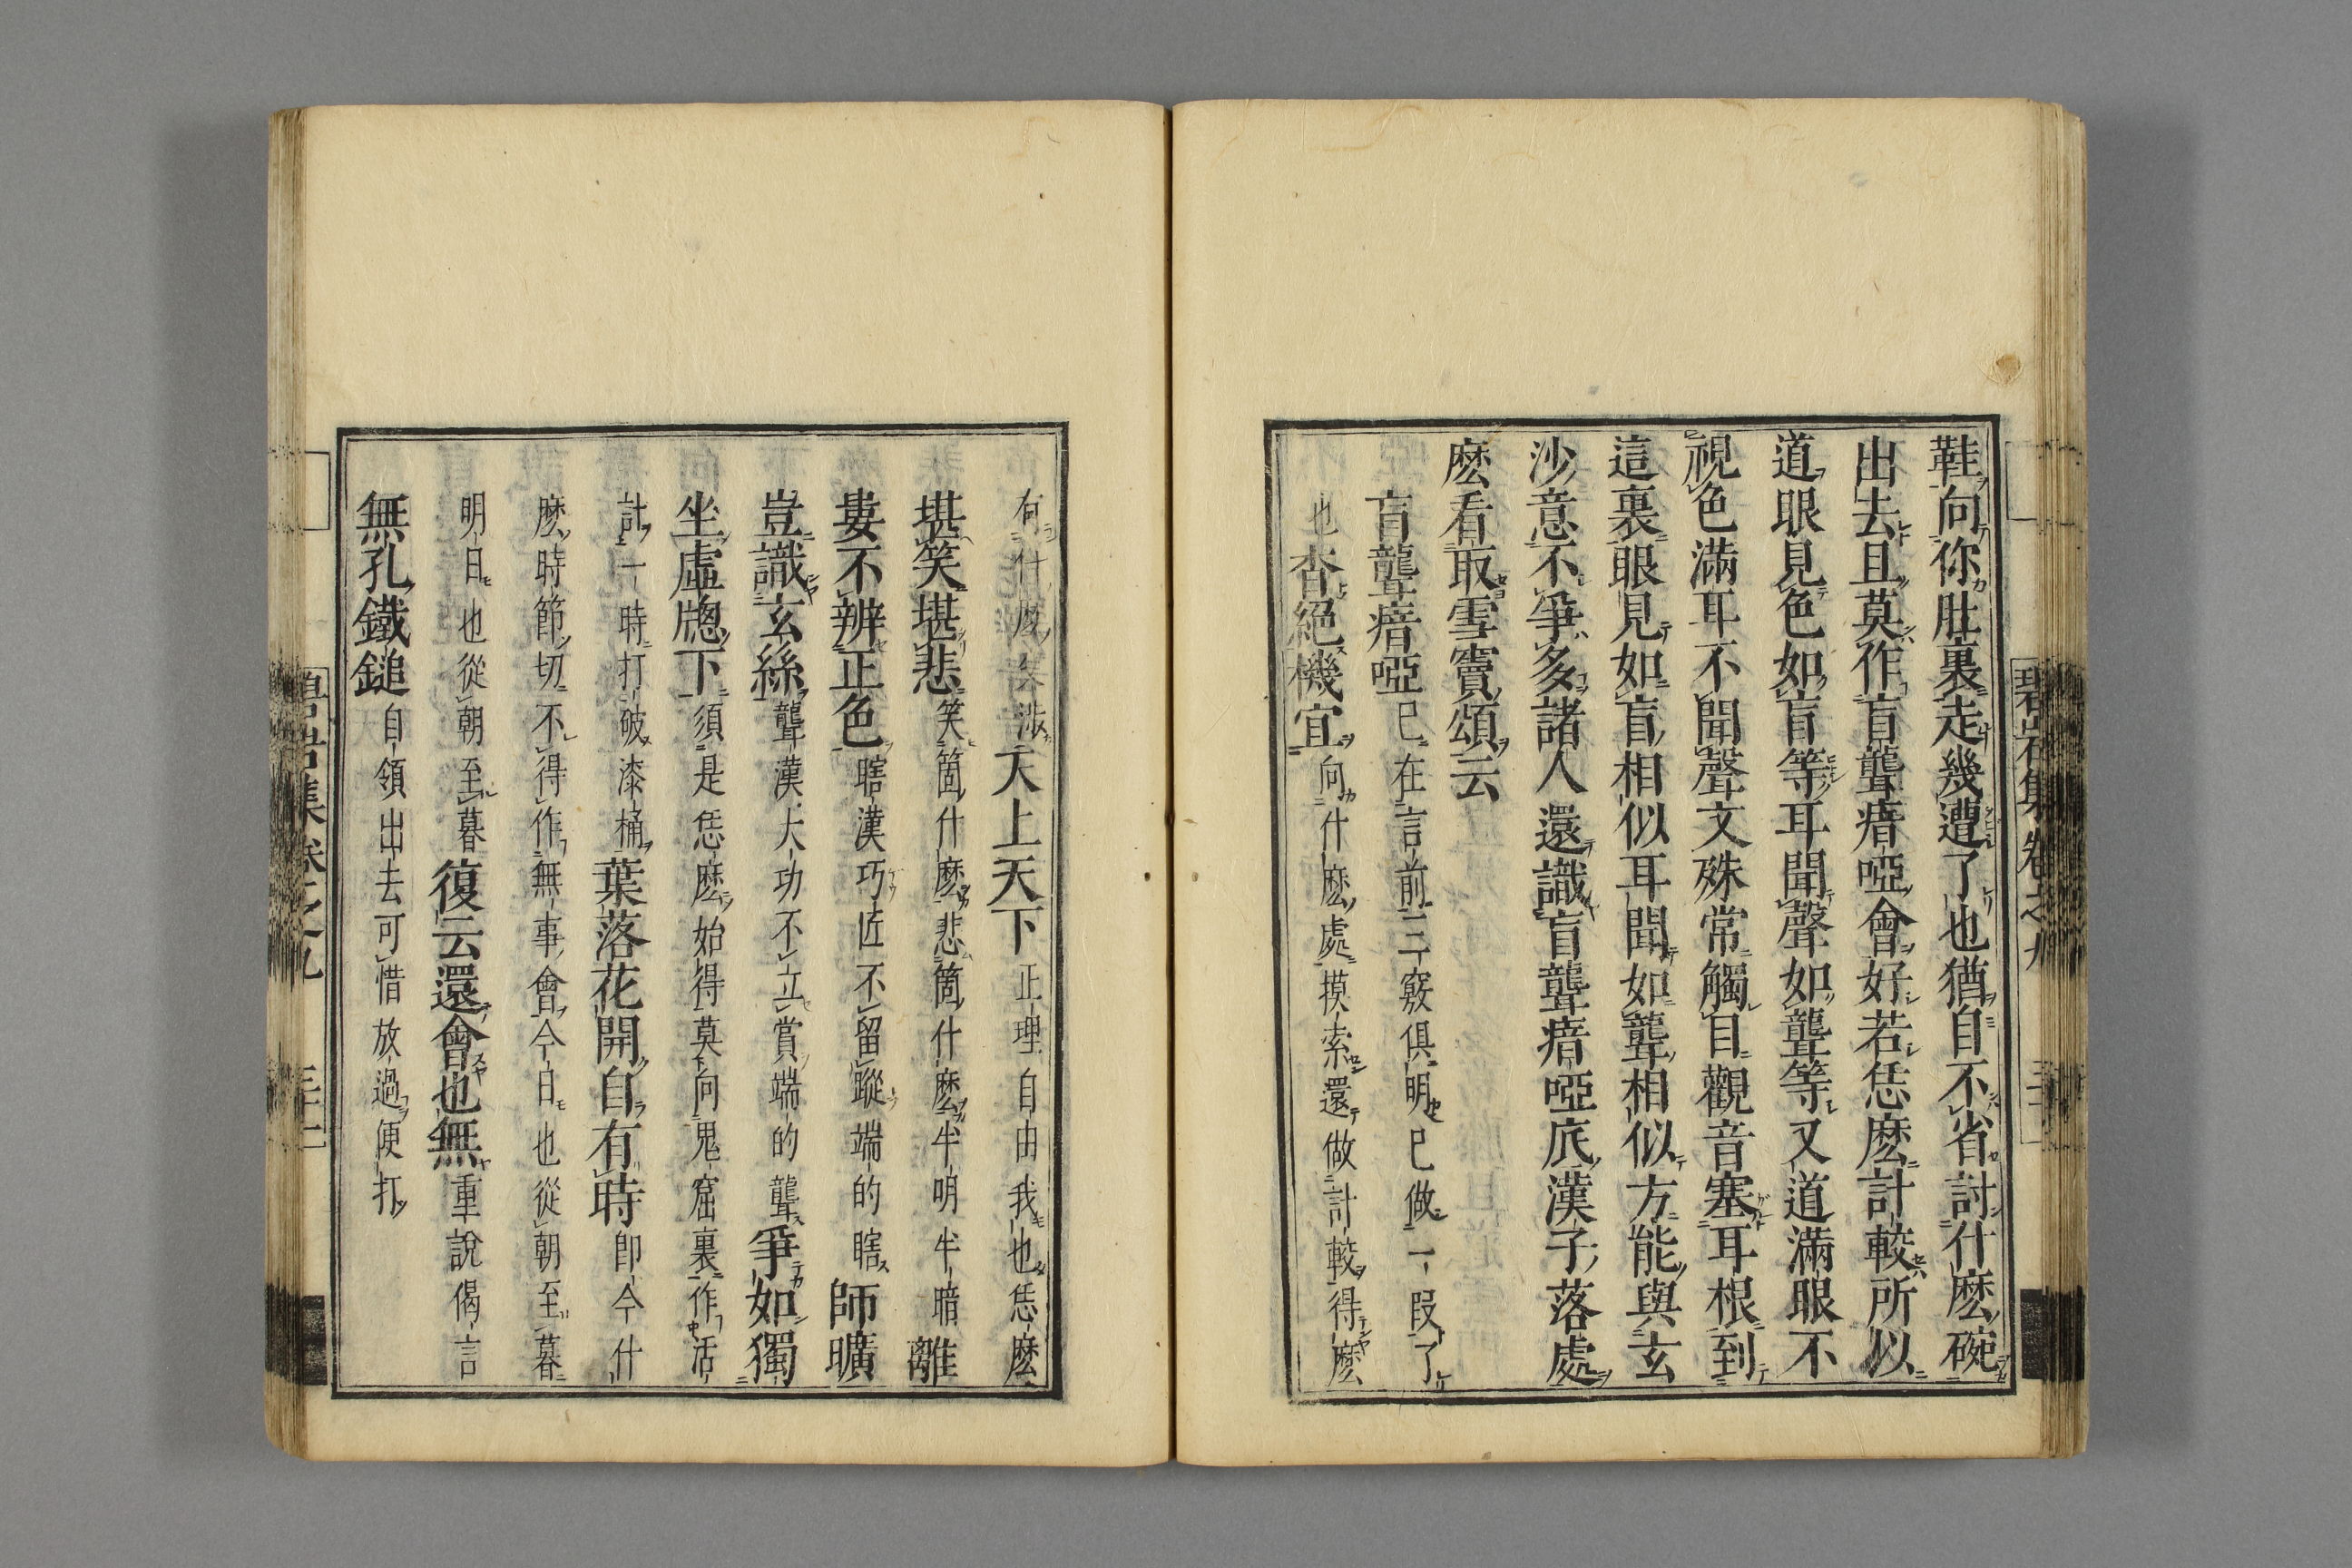 鞋向你肚裏走幾遭了也猶自不省討什麽碗
出去且莫作盲聾瘖啞會好若恁麽計較所以
道眼見色如盲等耳聞聲如聾等又道滿眼不
視色滿耳不聞聲文殊常觸目觀音塞耳根到
這裏眼見如盲相似耳聞如聾相似方能與玄
沙意不爭多諸人還識盲聾瘖啞底漢子落處
麽看取雪竇頌云
盲聾瘖啞已在言前三竅俱明已做一段了
也杳絕機宜向什麽處摸索還做計較得麽
有什麽交涉天上天下正理自由我也恁麽
堪笑堪悲笑箇什麽悲箇什麽半明半暗離
婁不辨正色瞎漢巧匠不留蹤端的瞎師曠
豈識玄絲聾漢大功不立賞端的聾爭如獨
坐虛牕下須是恁麽始得莫向鬼窟裏作活
計一時打破漆桶葉落花開自有時即今什
麽時節切不得作無事會今日也從朝至暮
明日也從朝至暮復云還會也無重說偈言
無孔鐵鎚自領出去可惜放過便打
碧岩集卷之九